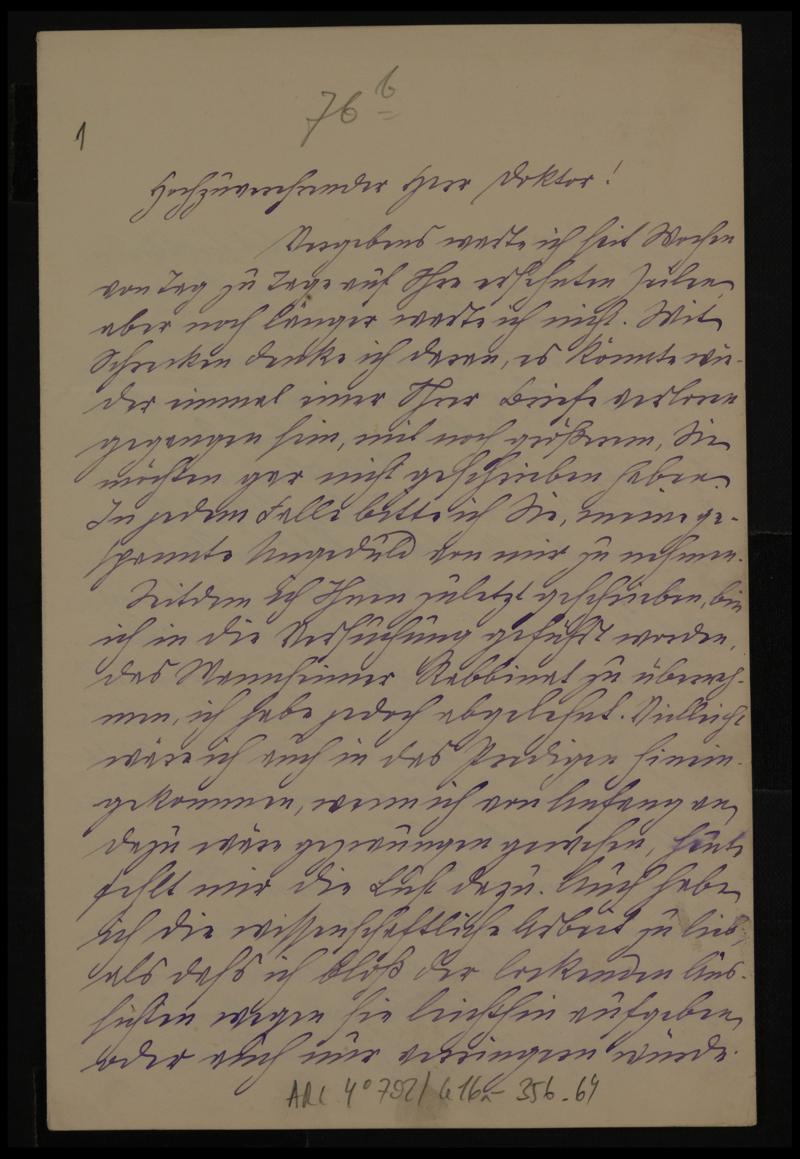 76 b
1
Hochzuverehrender Herr Doktor!
Vergebens warte ich seit Wochen
von Tag zu Tage auf Ihre ersehnten Zeilen,
aber noch länger warte ich nicht. Mit
Schrecken denke ich daran, es könnte wie-
der einmal einer Ihrer Briefe verloren
gegangen sein, mit noch größerem, Sie
möchten gar nicht geschrieben haben.
In jedem Falle bitte ich Sie, meine ge-
spannte Ungeduld von mir zu nehmen.
Seitdem ich Ihnen zuletzt geschrieben, bin
ich in die Versuchung geführt worden,
das Mannheimer Rabbinat zu überneh-
men, ich habe jedoch abgelehnt. Vielleicht
wäre ich auch in das Predigen hinein-
gekommen, wenn ich von Anfang an
dazu wäre gezwungen gewesen, heute
fehlt mir die Lust dazu. Auch habe
ich die wissenschaftliche Arbeit zu lieb,
als dass ich bloß der lockenden Aus-
sichten wegen sie leichthin aufgeben
oder auch nur verringern würde.
ARC 4° 792/ 356-64